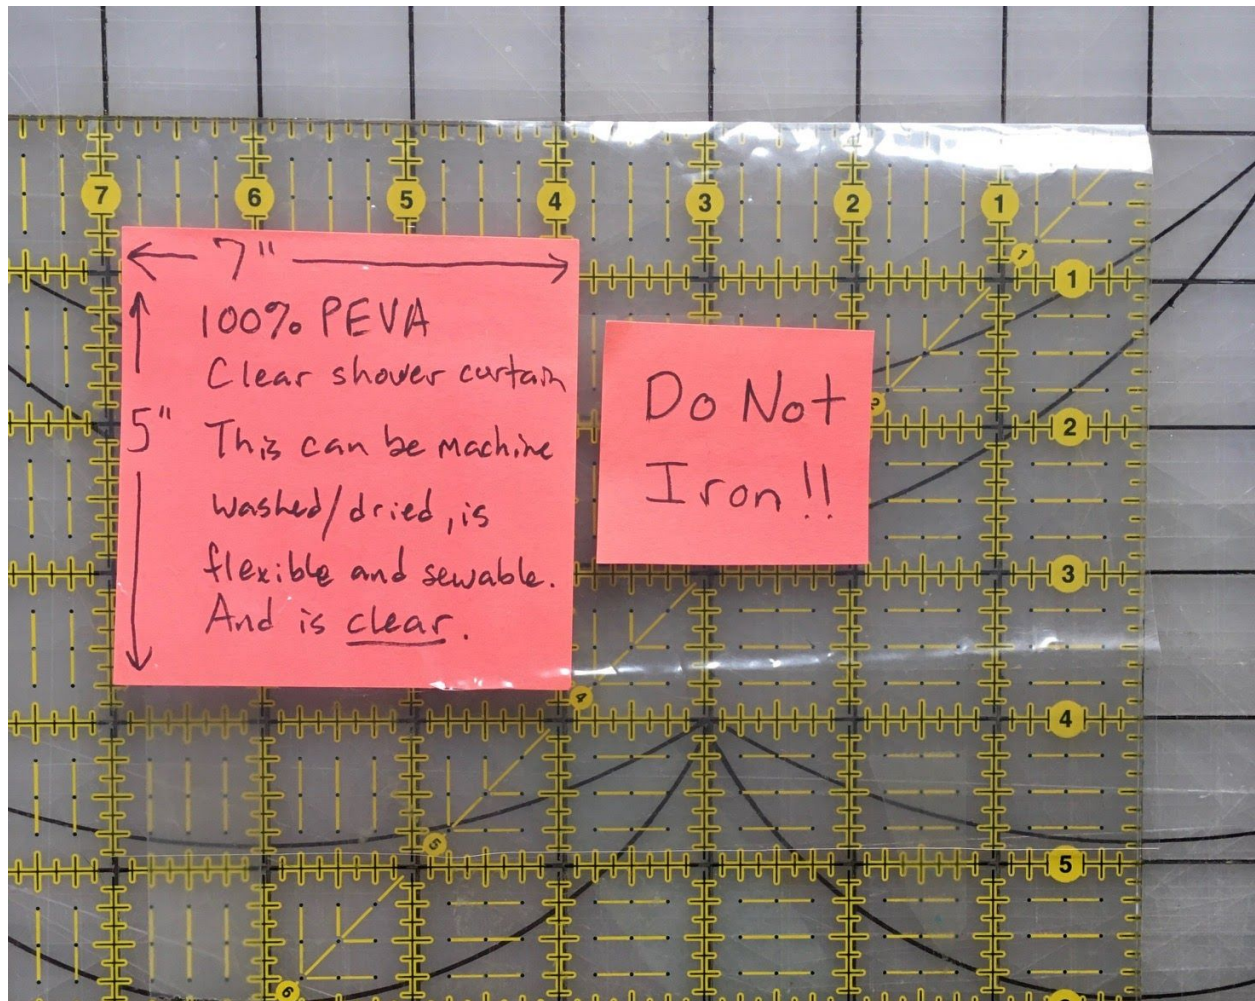 7 6 5 4 3 2 1
7"
1
1
100% PEVA
Clear shower curtain
5"
This can be machine
washed/dried, is
flexible and sewable.
And is clear.
Do Not
Iron!!
2
2
3
4
4
5
5
6